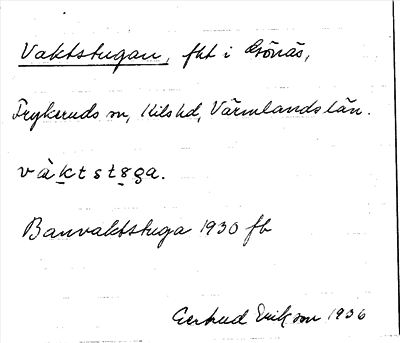 Vaktstugan, fht i Grönäs,
Frykeruds sn, Kils hd, Värmlands län.
väktstsga.
Banvaktsstuga 1930 fb
Gertrud Erikson 1936